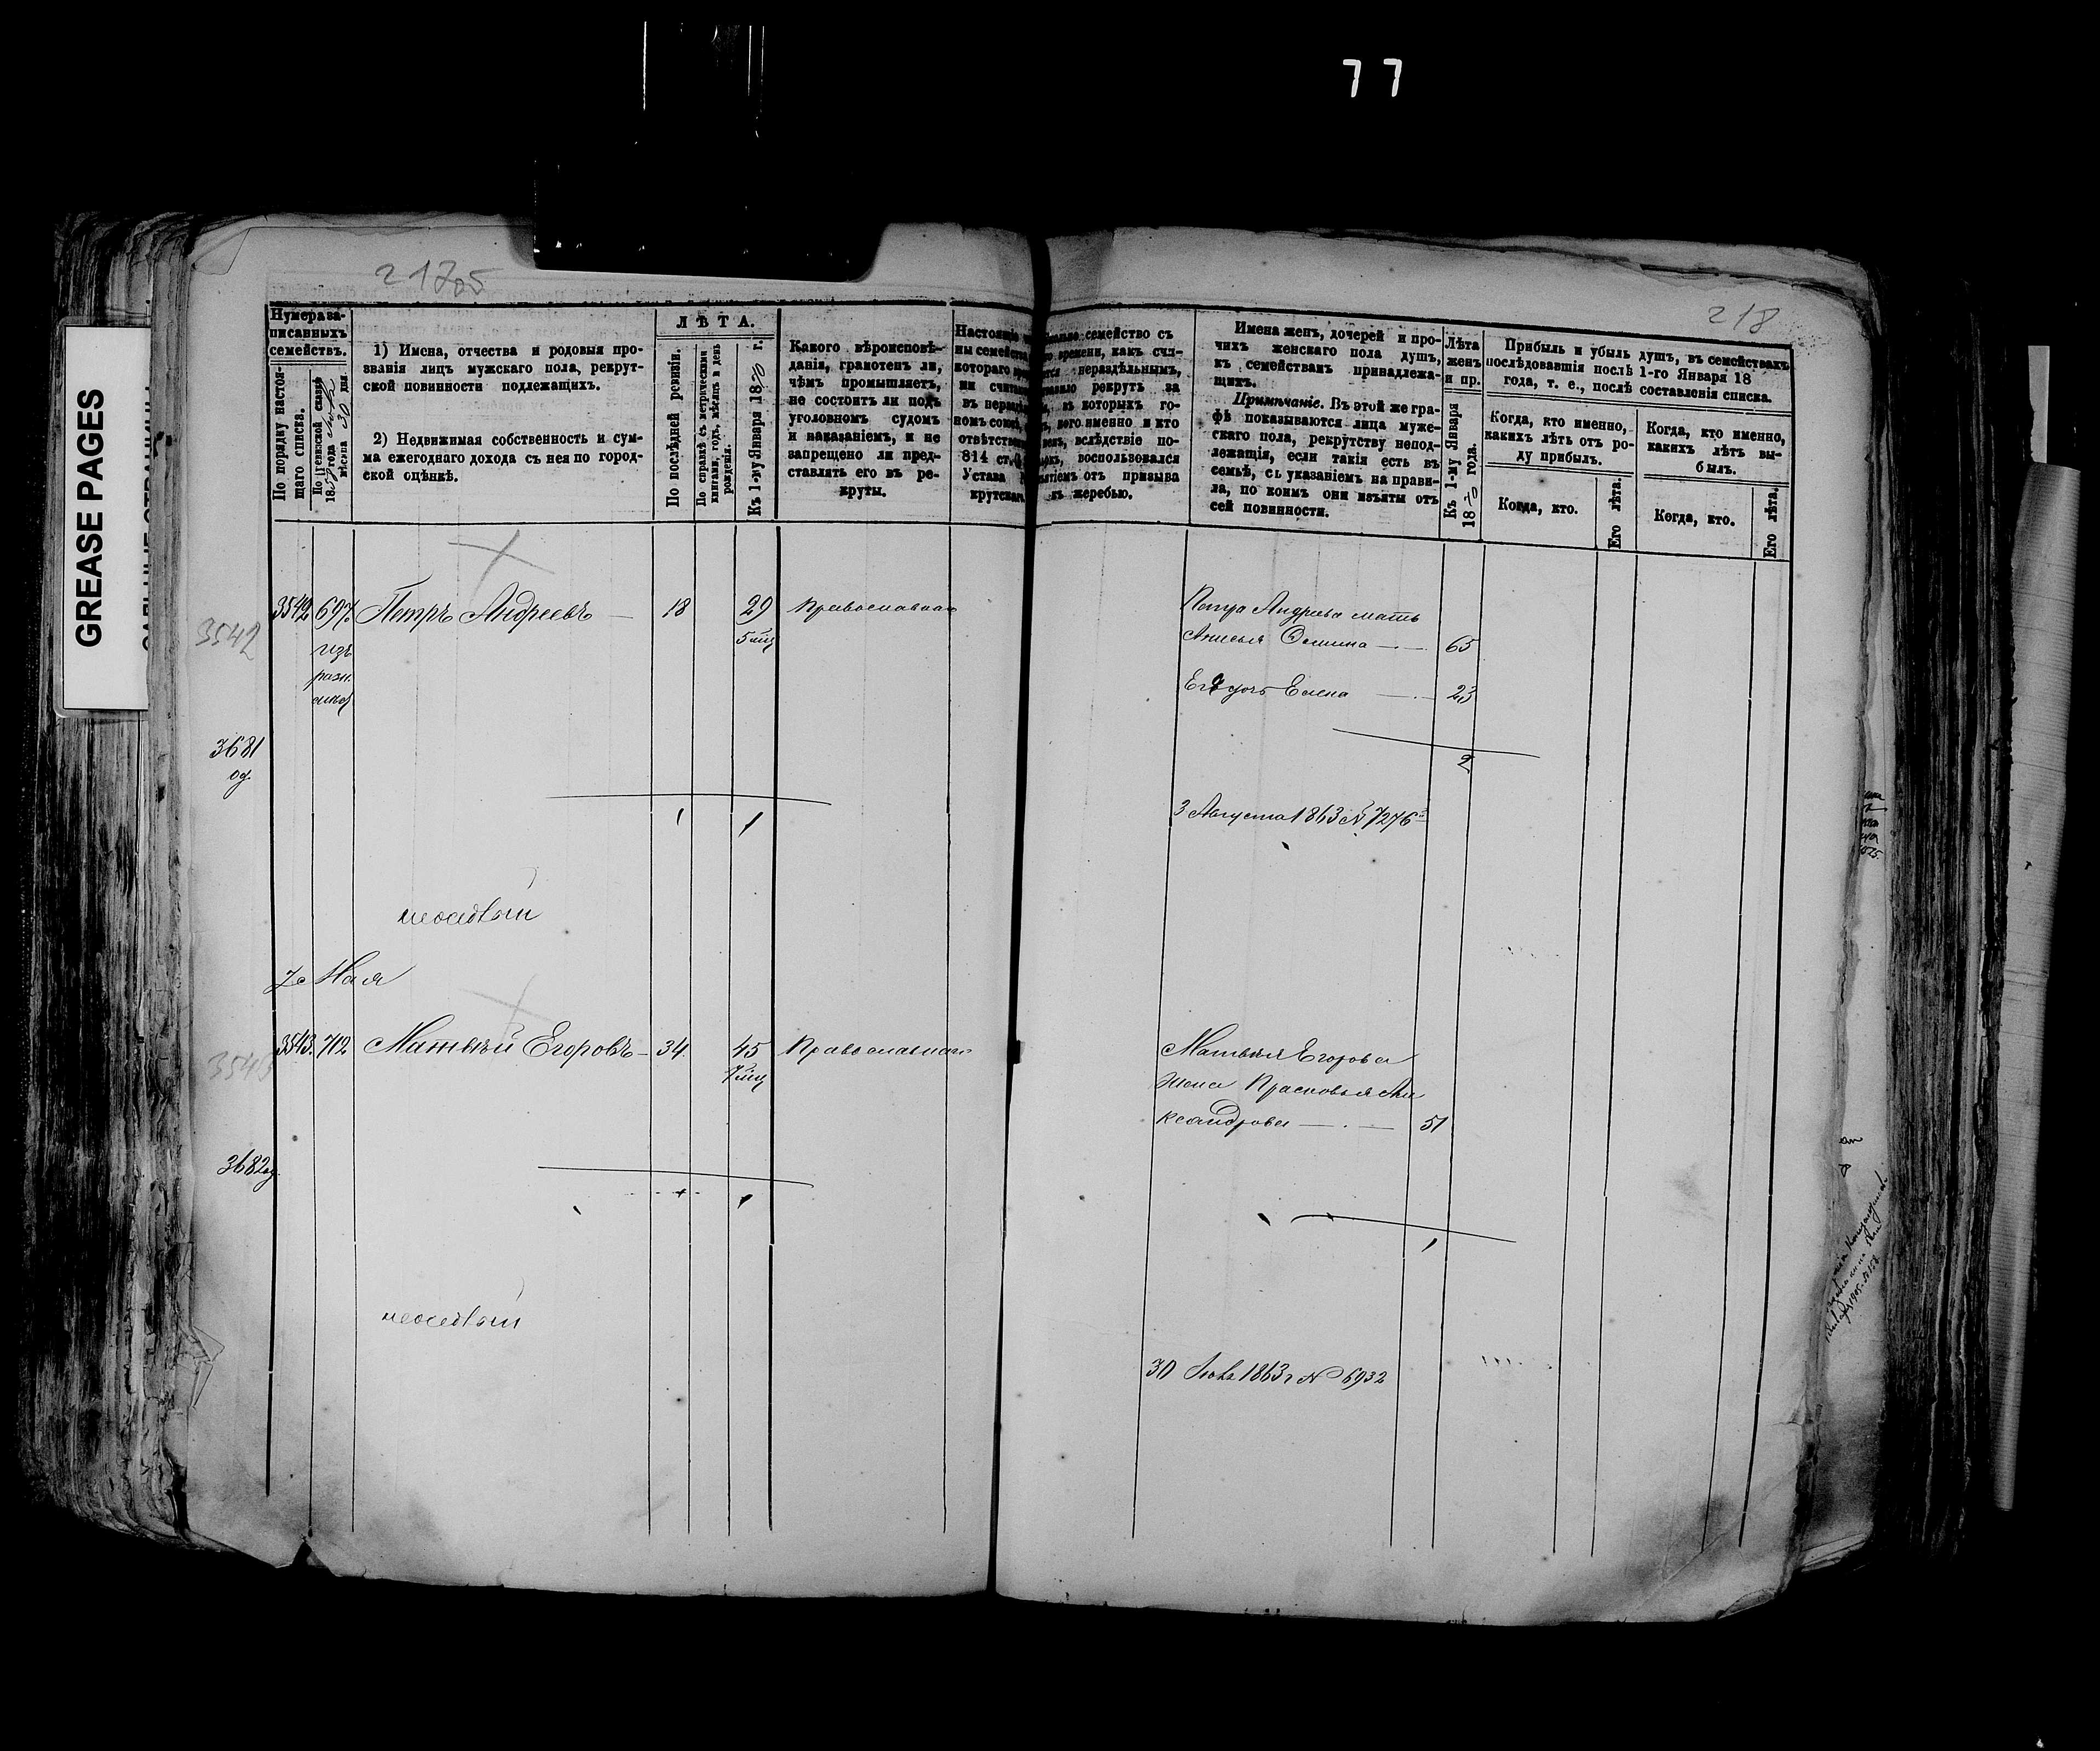 77
GREASE PAGES
218
Нумера за-
писанныхъ
семействъ.
По порядку настоя-
щаго списка.
По ревизской сказкѣ
мѣсяца 30 дня
1) Имена, отчества и родовыя про-
званія лицъ мужскаго пола, рекрут-
ской повинности подлежащихъ.
2) Недвижимая собственность и сум-
ма ежегоднаго дохода съ нея по город-
ской оцѣнкѣ.
ЛѢТА.
По послѣдней ревизіи.
По справкѣ съ метрическими
книгами, годъ, мѣсяцъ и день
рожденія.
Къ 1-му Января 1870 г.
Какого вѣроисповѣ-
данія, грамотенъ ли,
чѣмъ промышляетъ,
не состоитъ ли подъ
уголовномъ судомъ
и наказаніемъ, и не
запрещено ли пред-
ставлять его въ ре-
круты.
семейство съ
времени, какъ счи-
нераздѣльнымъ,
рекрутъ за
въ которыхъ го-
кого именно и кто
вслѣдствіе по-
воспользовался
изъятіемъ отъ призыва
къ жеребью.
Имена женъ, дочерей и про-
чихъ женскаго пола душъ,
къ семействамъ принадлежа-
щихъ.
Примѣчаніе. Въ этой же гра-
фѣ показываются лица муже-
скаго пола, рекрутству непод-
лежащія, если такія есть въ
семьѣ, съ указаніемъ на прави-
ла, по коимъ они изъяты отъ
сей повинности.
Лѣта
женъ
и пр.
Къ 1-му Января
1870 года.
Прибыль и убыль душъ, въ семействахъ
послѣдовавшія послѣ 1-го Января 18
года, т. е., послѣ составленія списка.
Когда, кто именно,
какихъ лѣтъ отъ ро-
ду прибылъ.
Когда, кто именно,
какихъ лѣтъ вы-
былъ.
Когда, кто.
Его лѣта.
Когда, кто.
Его лѣта.
3542 697 Петръ Андреевъ — 18 29 Православнаго
3542
5 мѣц
изъ
разн.
Петра Андреева мать
Анисья Фомина — 65
Его дочь Елена — 23
2
3681
од.
1 1
3 Августа 1863 N 7276
неоседлый
7е Мая
3543. 712 Матвѣй Егоровъ — 34. 45 Православнаго
3543
7 мѣц
Матвѣя Егорова
жена Прасковья Але
ксандрова — 51
3682 од.
1 1
1
неоседлый
30 1863 г N 6932